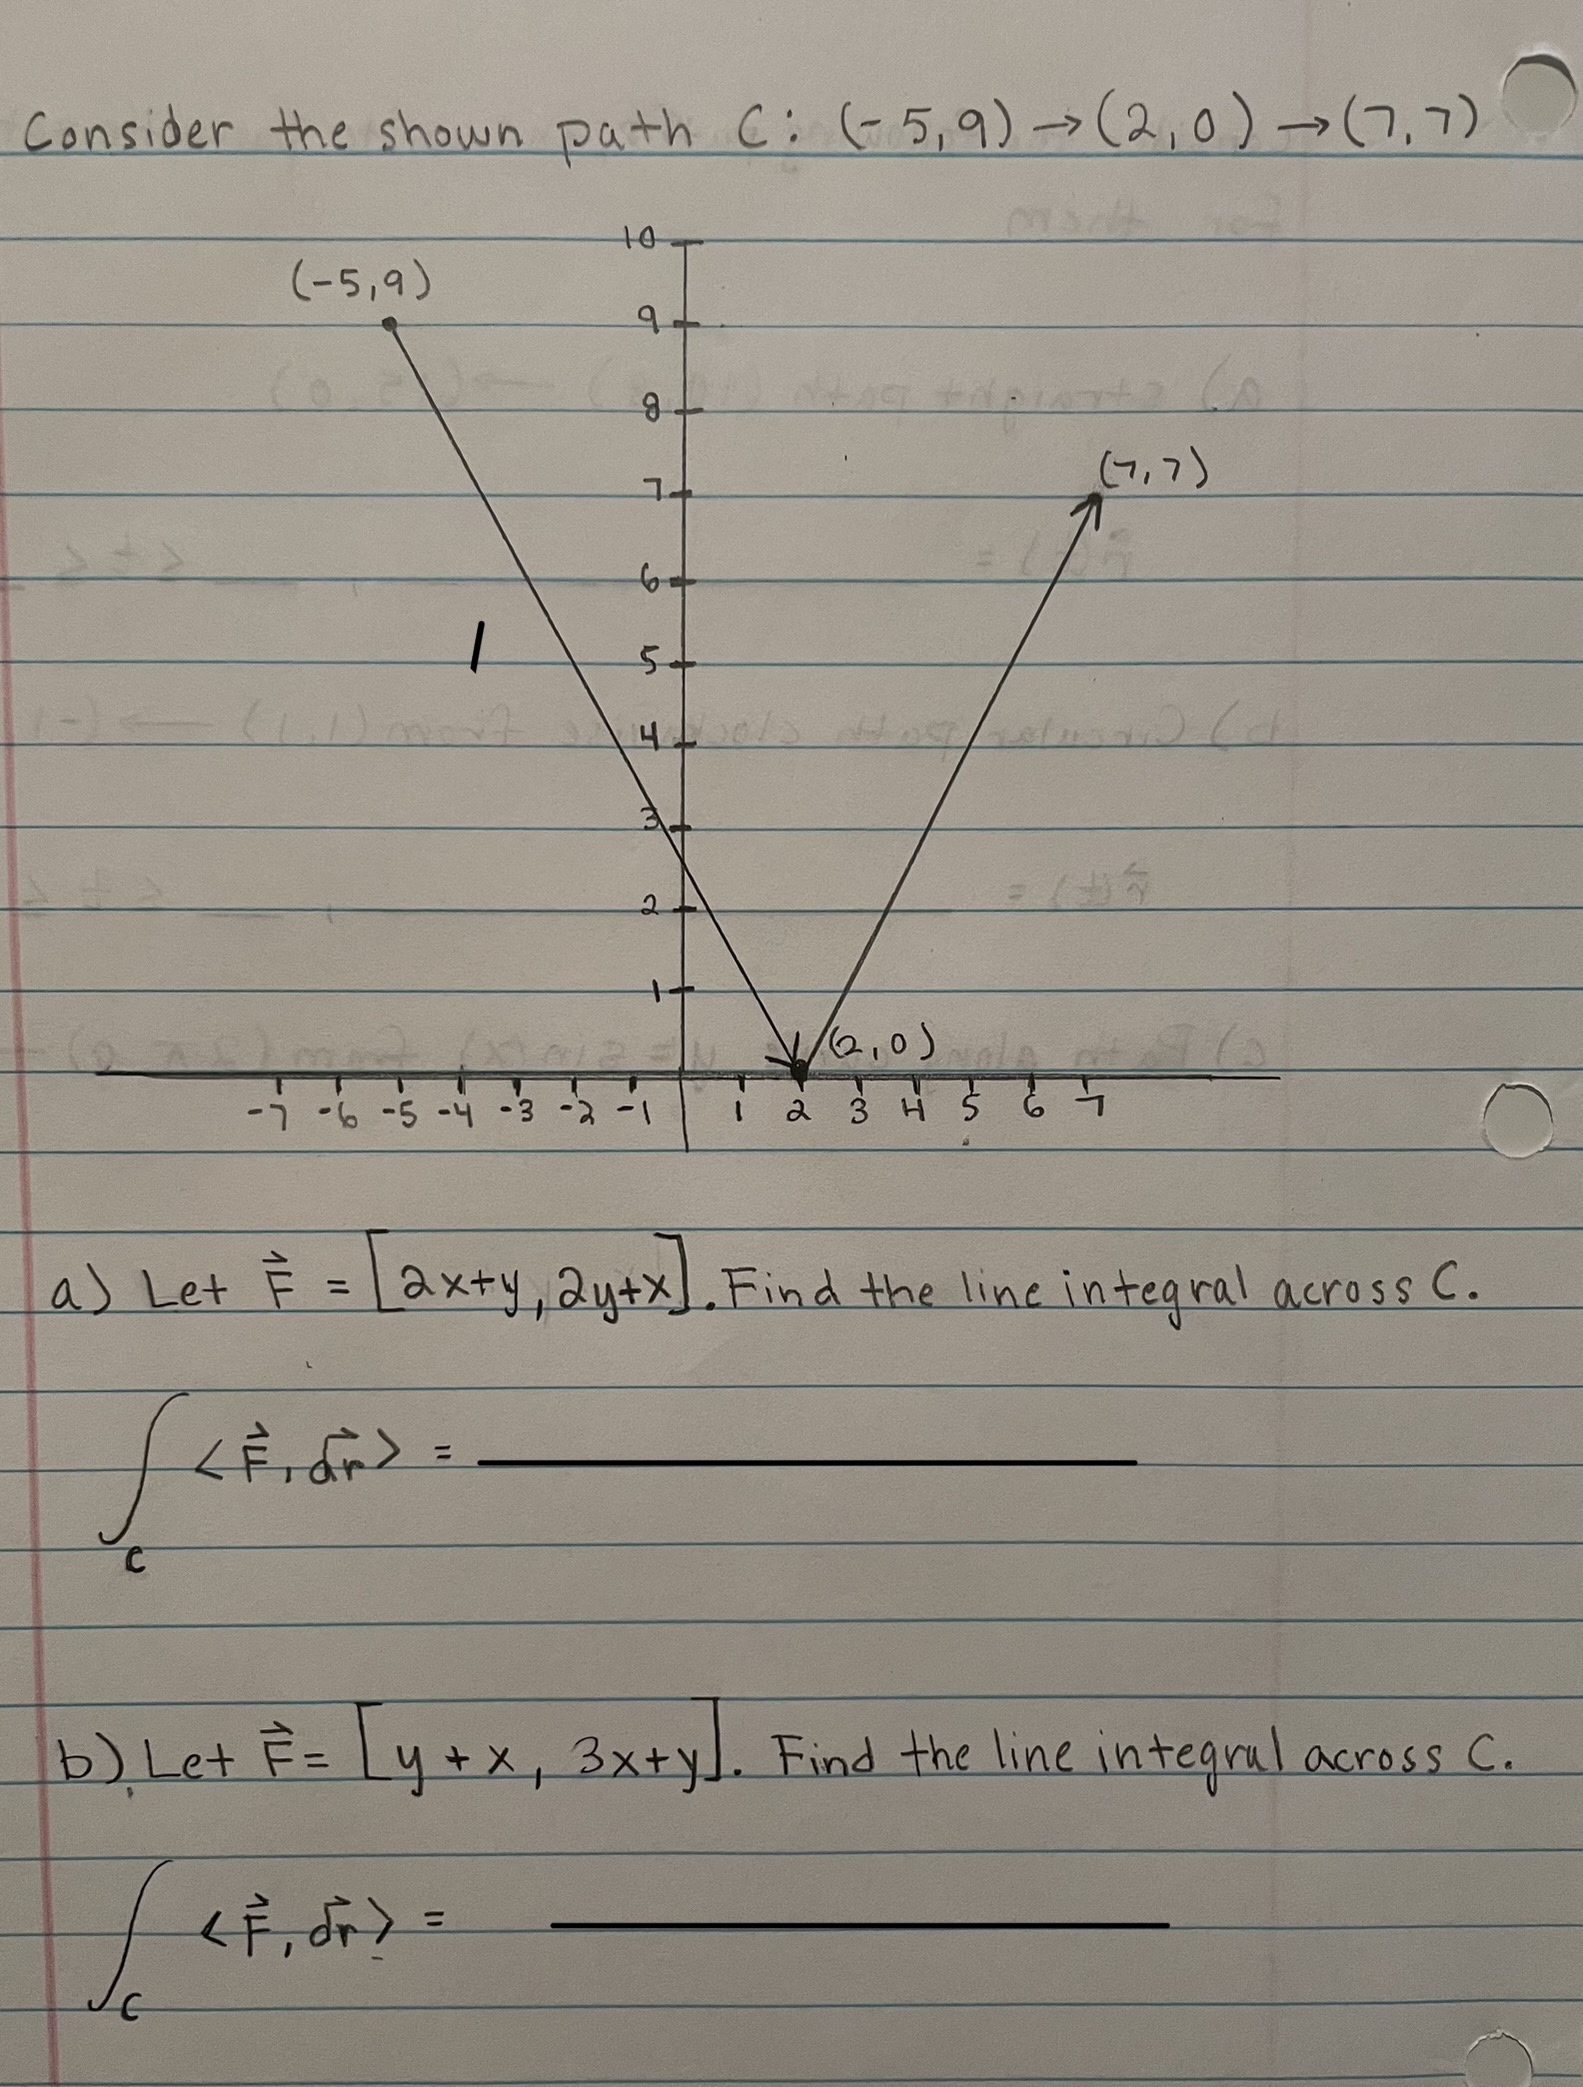 Consider the shown path C: (-5,9) → (2,0) → (7,7)
10
(-5,9)
9
8
(7,7)
7
6
5
4
3
2
1
(2,0)
-7 -6 -5 -4 -3 -2 -1 1 2 3 4 5 6 7
a) Let F⃗ = [2x+y, 2y+x]. Find the line integral across C.
∫_C <F⃗, dr⃗> =
b) Let F⃗ = [y+x, 3x+y]. Find the line integral across C.
∫_C <F⃗, dr⃗> =